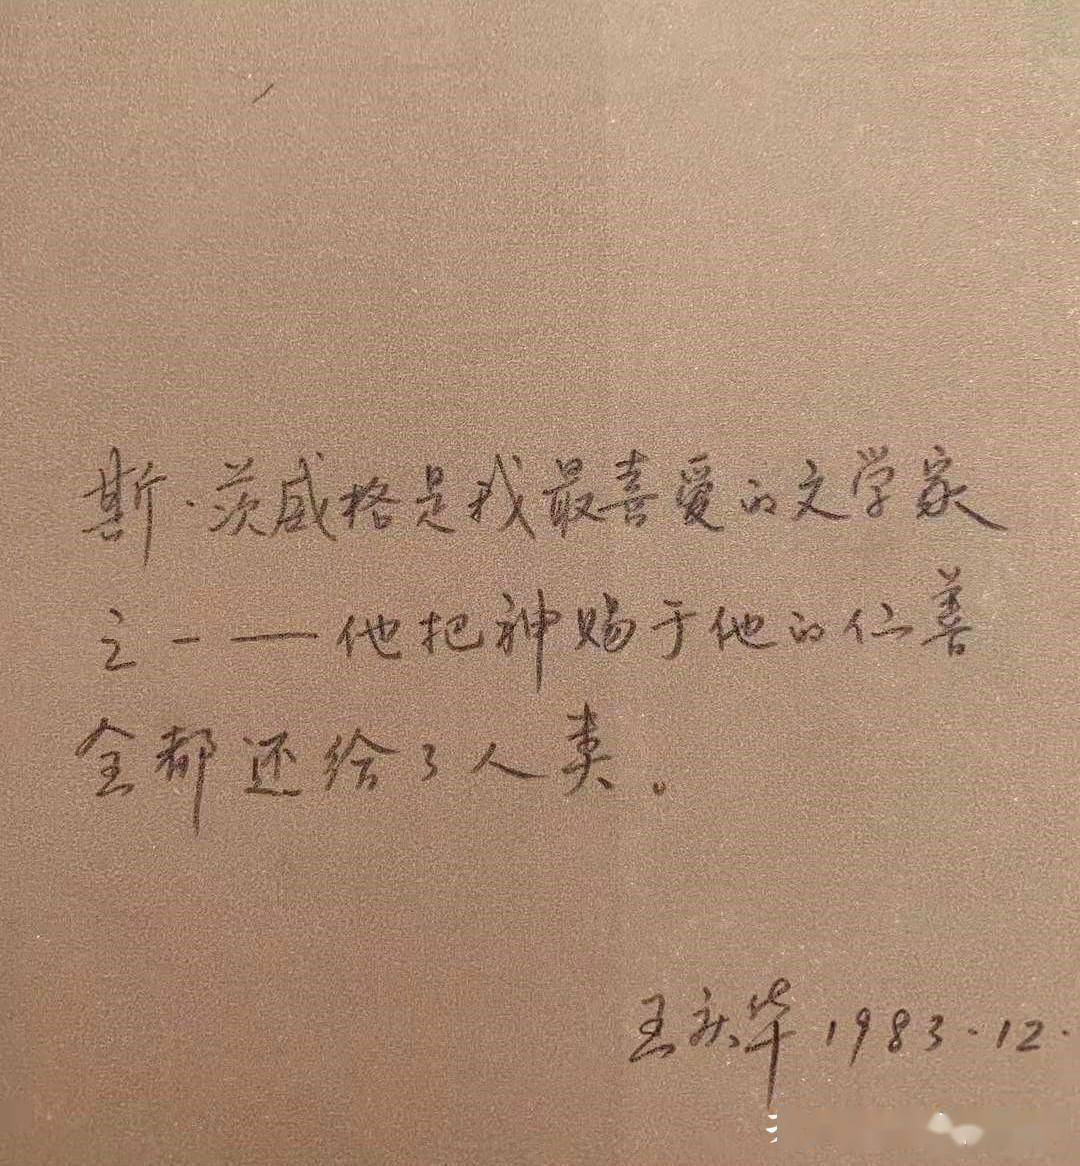 斯·茨威格是我最喜爱的文学家
之一——他把神赐于他的仁善
全都还给了人类。
王庆华 1983.12.